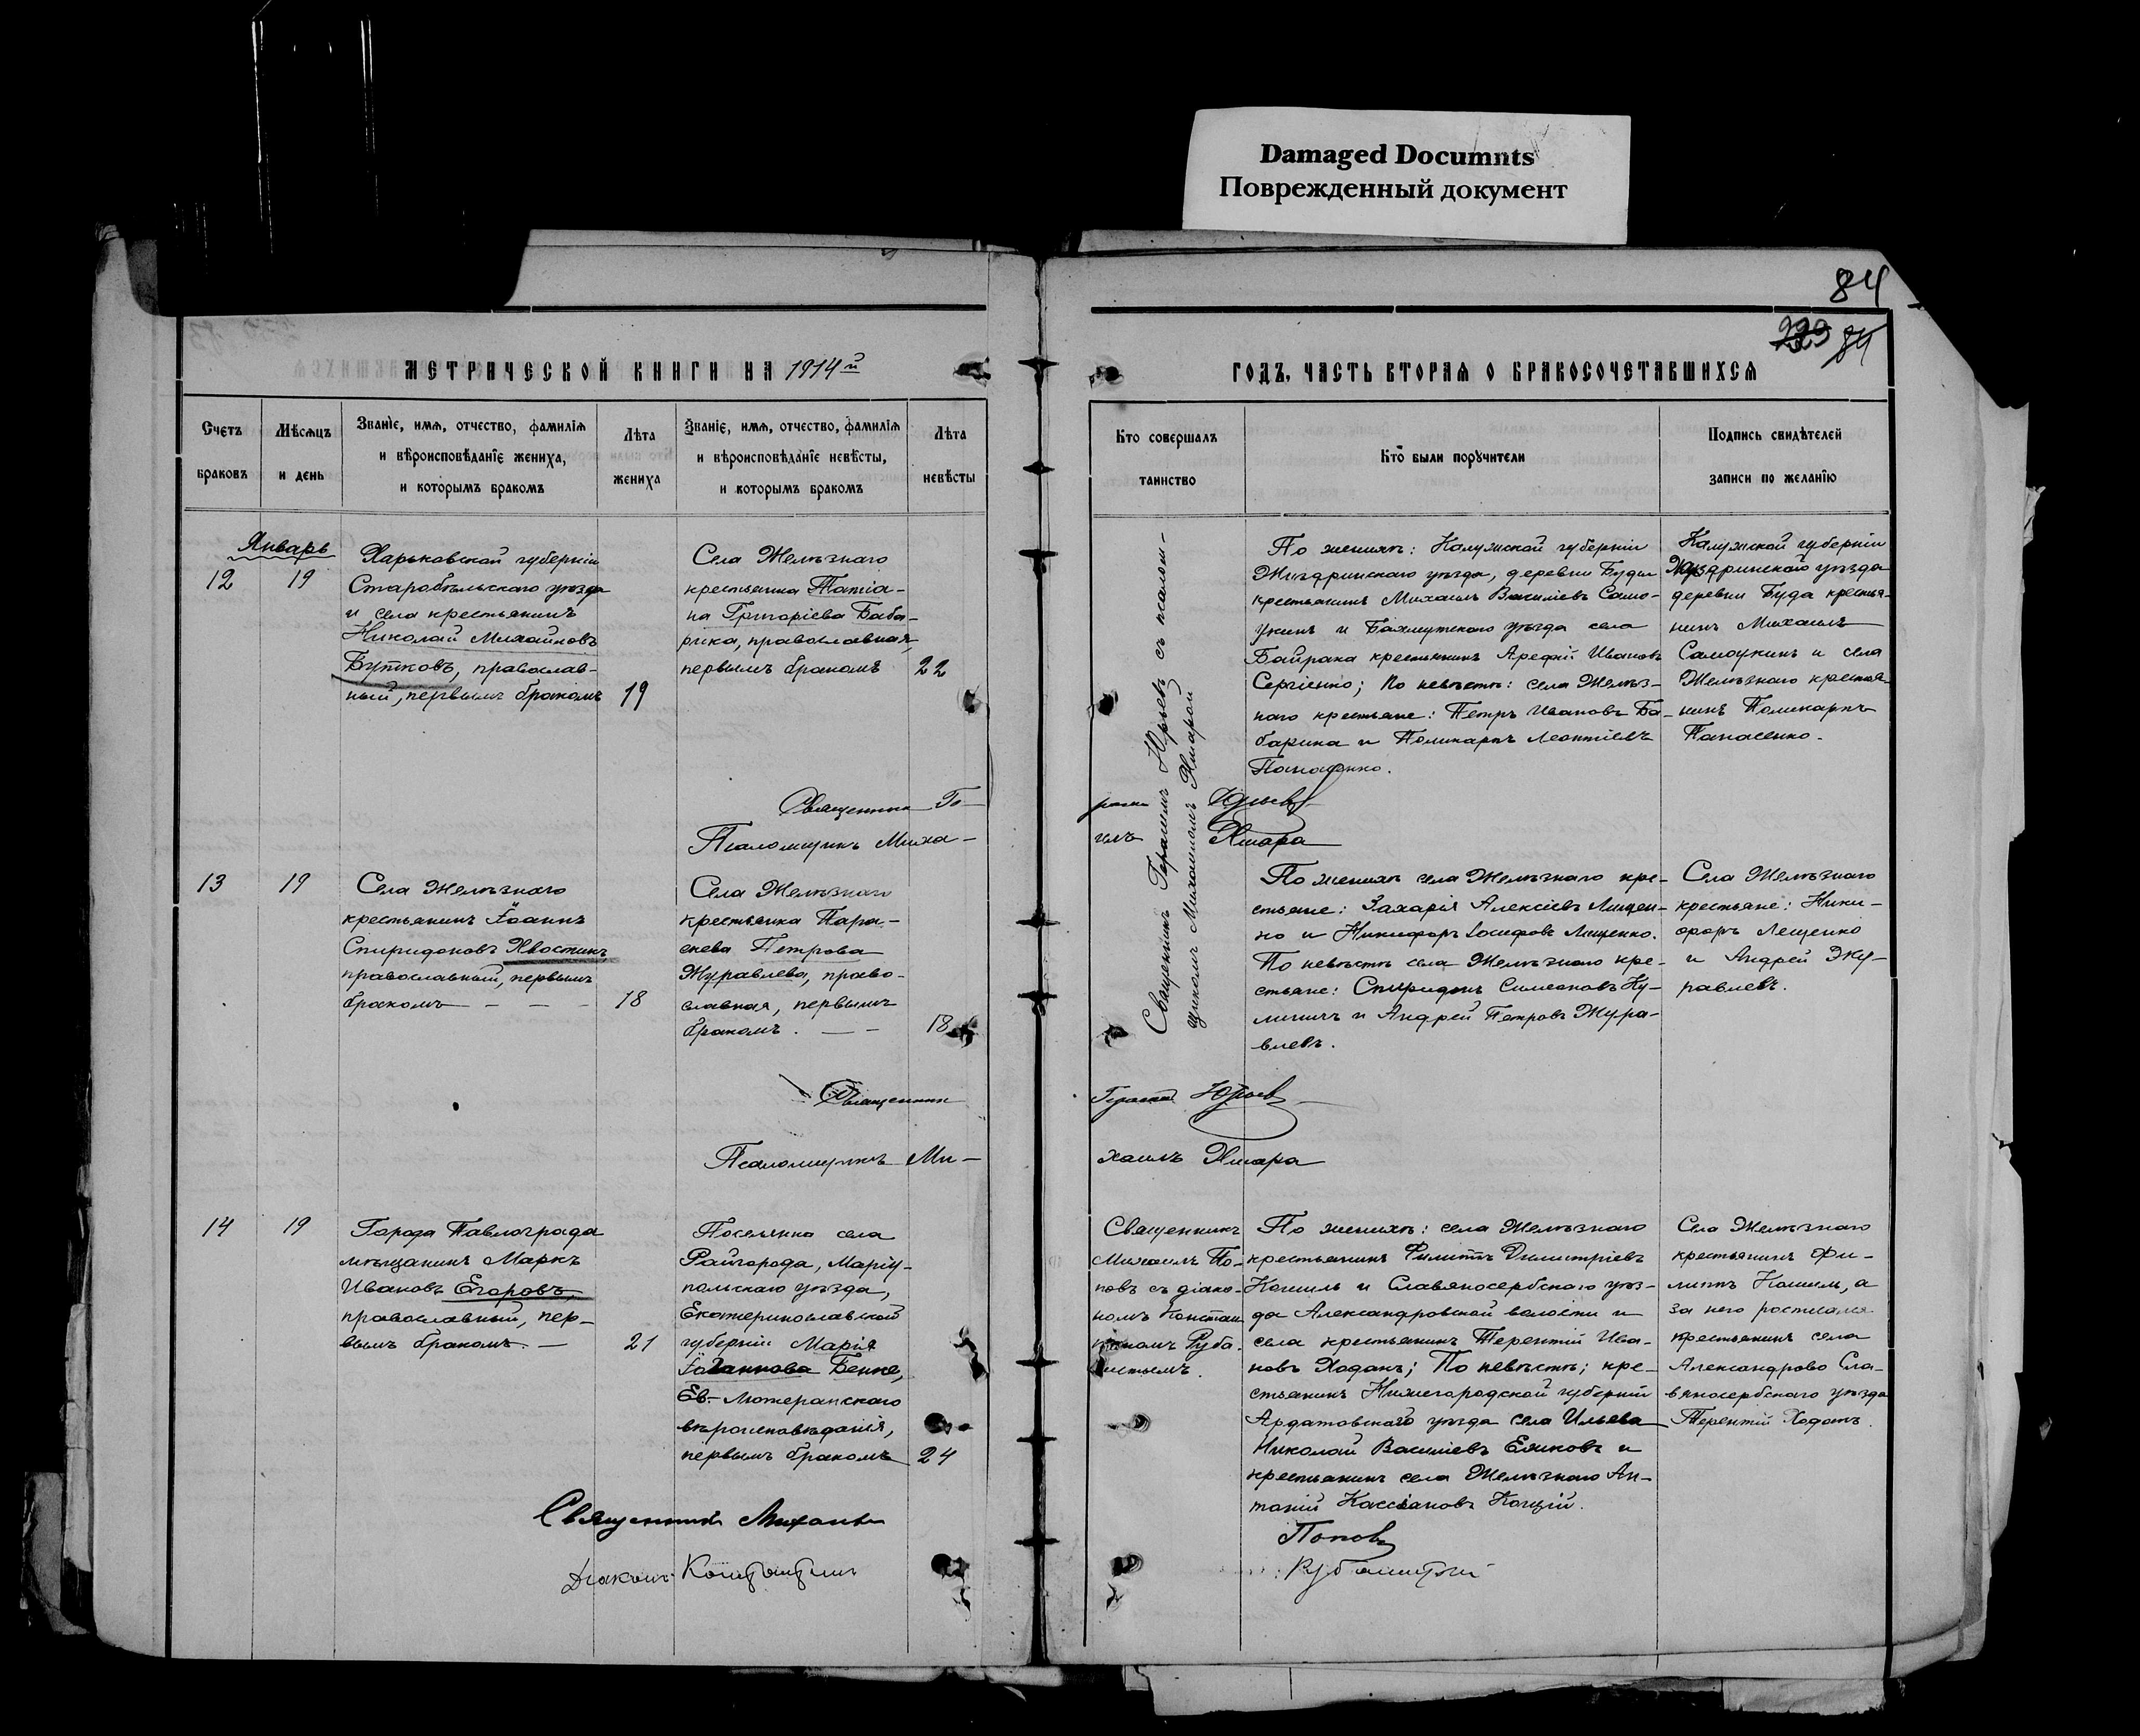 Damaged Documnts
Поврежденный документ
84
84
МЕТРИЧЕСКОЙ КНИГИ НА 1914й
ГОДЪ, ЧАСТЬ ВТОРАЯ О БРАКОСОЧЕТАВШИХСЯ
Счетъ
браковъ
Мѣсяцъ
и день
Званіе, имя, отчество, фамилія
и вѣроисповѣданіе жениха,
и которымъ бракомъ
Лѣта
жениха
Званіе, имя, отчество, фамилія
и вѣроисповѣданіе невѣсты,
и которымъ бракомъ
Лѣта
невѣсты
Кто совершалъ
таинство
Кто были поручители
Подпись свидѣтелей
записи по желанію
Январь
12
19
Харьковской губерніи
Старобѣльскаго уѣзда
и села крестьянинъ
Николай Михайловъ
Бутковъ, православ-
ный, первымъ бракомъ
19
Села Желѣзнаго
крестьянка Татіа-
на Григоріева Баба-
рика, православная,
первымъ бракомъ
22
Священникъ Герасимъ Юрьевъ съ псалом-
щикомъ Михаиломъ Хмарой
По женихѣ: Калужской губерніи
Жиздринскаго уѣзда, деревни Буды
крестьянинъ Михаилъ Василіевъ Само-
укинъ и Бахмутскаго уѣзда села
Байрака крестьянинъ Арефій Ивановъ
Сергіенко; по невѣстѣ: села Желѣз-
наго крестьяне: Петръ Ивановъ Ба-
барика и Поликарпъ Леонтіевъ
Панасенко.
Калужской губерніи
Жиздринскаго уѣзда
деревни Буда крестья-
нинъ Михаилъ
Самоукинъ и села
Желѣзнаго крестья-
нинъ Поликарпъ
Панасенко.
Священникъ Ге-
расим Юрьевъ
Псаломщикъ Миха-
илъ Хмара
13
19
Села Желѣзнаго
крестьянинъ Іоаннъ
Спиридоновъ Хвостикъ,
православный, первымъ
бракомъ - - -
18
Села Желѣзнаго
крестьянка Пара-
скева Петрова
Журавлева, право-
славная, первымъ
бракомъ. - -
18
По женихѣ села Желѣзнаго кре-
стьяне: Захарія Алексіевъ Лищен-
ко и Никифоръ Іосифовъ Лещенко.
По невѣстѣ села Желѣзнаго кре-
стьяне: Спиридонъ Симеоновъ Ку-
личъ и Андрей Петровъ Жура-
влевъ.
Села Желѣзнаго
крестьяне: Ники-
форъ Лещенко
и Андрей Жу-
равлевъ.
Священникъ
Герасим Юрьев
Псаломщикъ Ми-
хаилъ Хмара
14
19
Города Павлограда
мѣщанинъ Маркъ
Ивановъ Егоровъ,
православный, пер-
вымъ бракомъ. -
21
Поселянка села
Райгорода, Маріу-
польскаго уѣзда,
Екатеринославской
губерніи Марія
Іоаннова Бенке,
Ев.-лютеранскаго
вѣроисповѣданія,
первымъ бракомъ
24
Священникъ
Михаилъ По-
повъ съ діако-
номъ Констан
тиномъ Руба-
По женихѣ: села Желѣзнаго
крестьянинъ Филиппъ Димитріевъ
Кошиль и Славяносербскаго уѣз-
да Александровской волости и
села крестьянинъ Терентій Ива-
новъ Ходакъ; По невѣстѣ; кре-
стьянинъ Нижегородской губерніи
Ардатовскаго уѣзда села Ильева
Николай Василіевъ Ежиковъ и
крестьянинъ села Желѣзнаго Ан-
тоній Кассіановъ Коцюй.
Села Желѣзнаго
крестьянинъ Фи-
липпъ Кошиль, а
за него росписался
крестьянинъ села
Александрово Сла-
вяносербскаго уѣзда
Терентій Ходакъ.
Священникъ Михаилъ
Поповъ
Діаконъ Константинъ